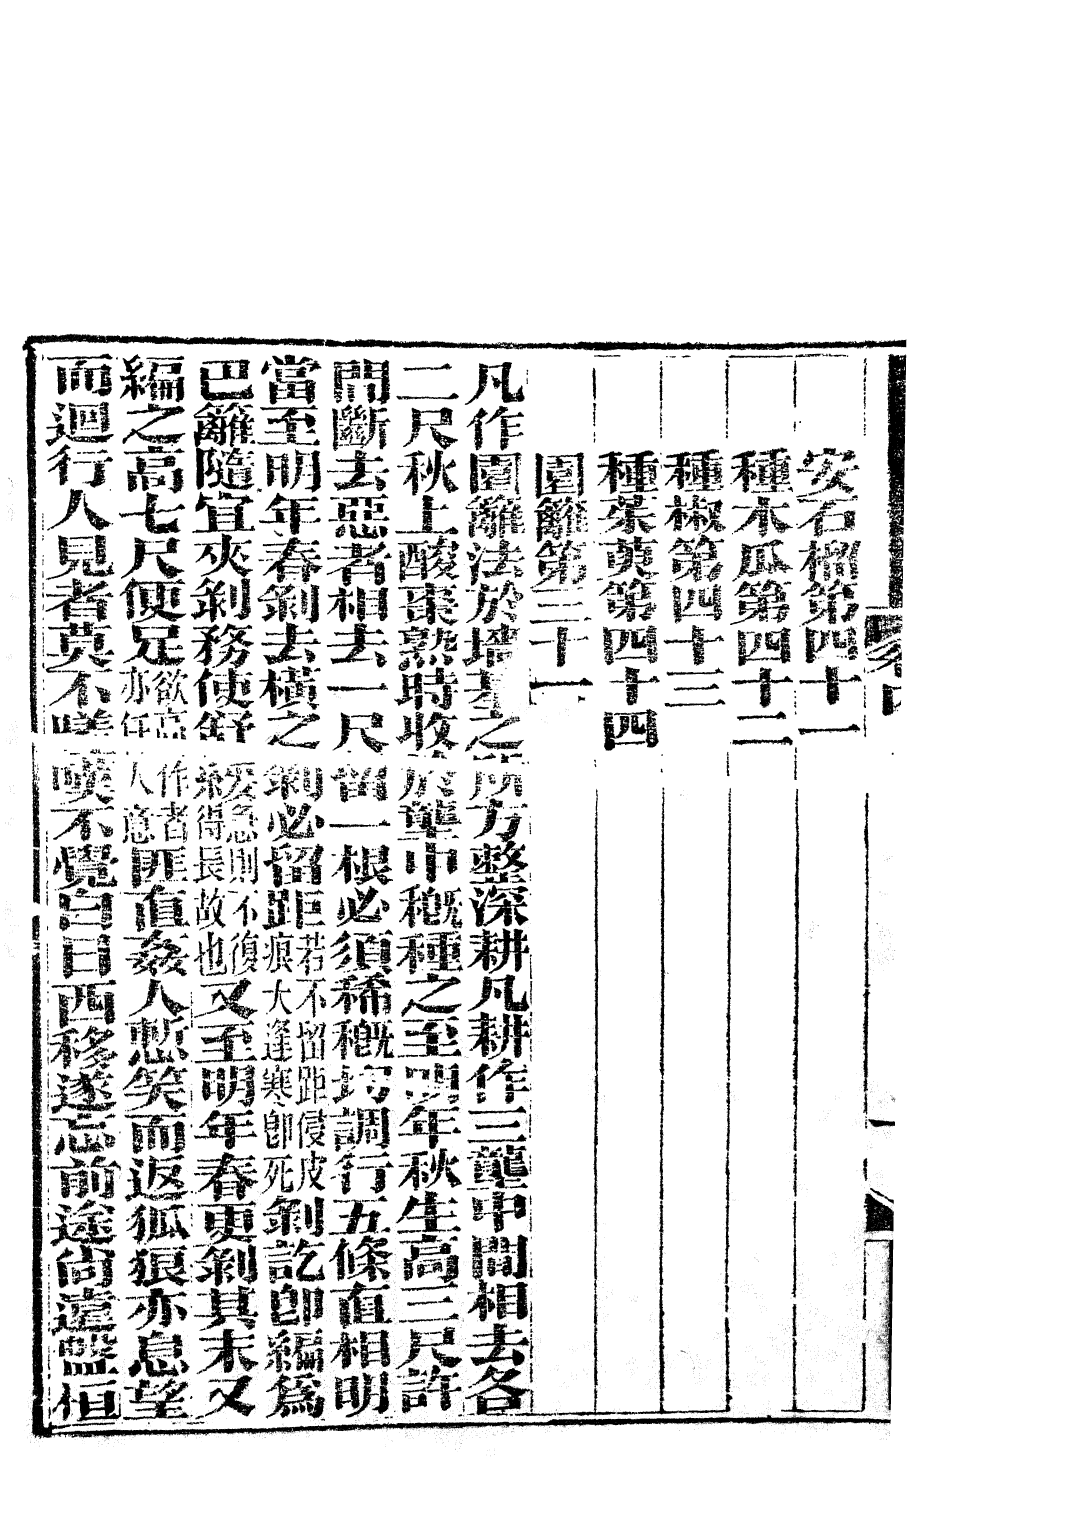 安石榴第四十一
種木瓜第四十二
種椒第四十三
種茱萸第四十四
園籬第三十一
凡作園籬法於墻基之所方整深耕凡耕作三壟中間相去各
二尺秋上酸棗熟時收於壟中穊種之至明年秋生高三尺許
間斷去惡者相去一尺留一根必須稀穊均調行五條直相明
當至明年春剝去橫之剝必留距若不留距侵皮痕大逢寒卽死剝訖卽編爲
巴籬隨宜夾剝務使舒緩急則不復得長故也又至明年春更剝其末又
編之高七尺便足欲高作者亦任人意匪直姦人慙笑而返狐狼亦息望
而迴行人見者莫不嗟嘆不覺白日西移遂忘前途尚遠盤桓